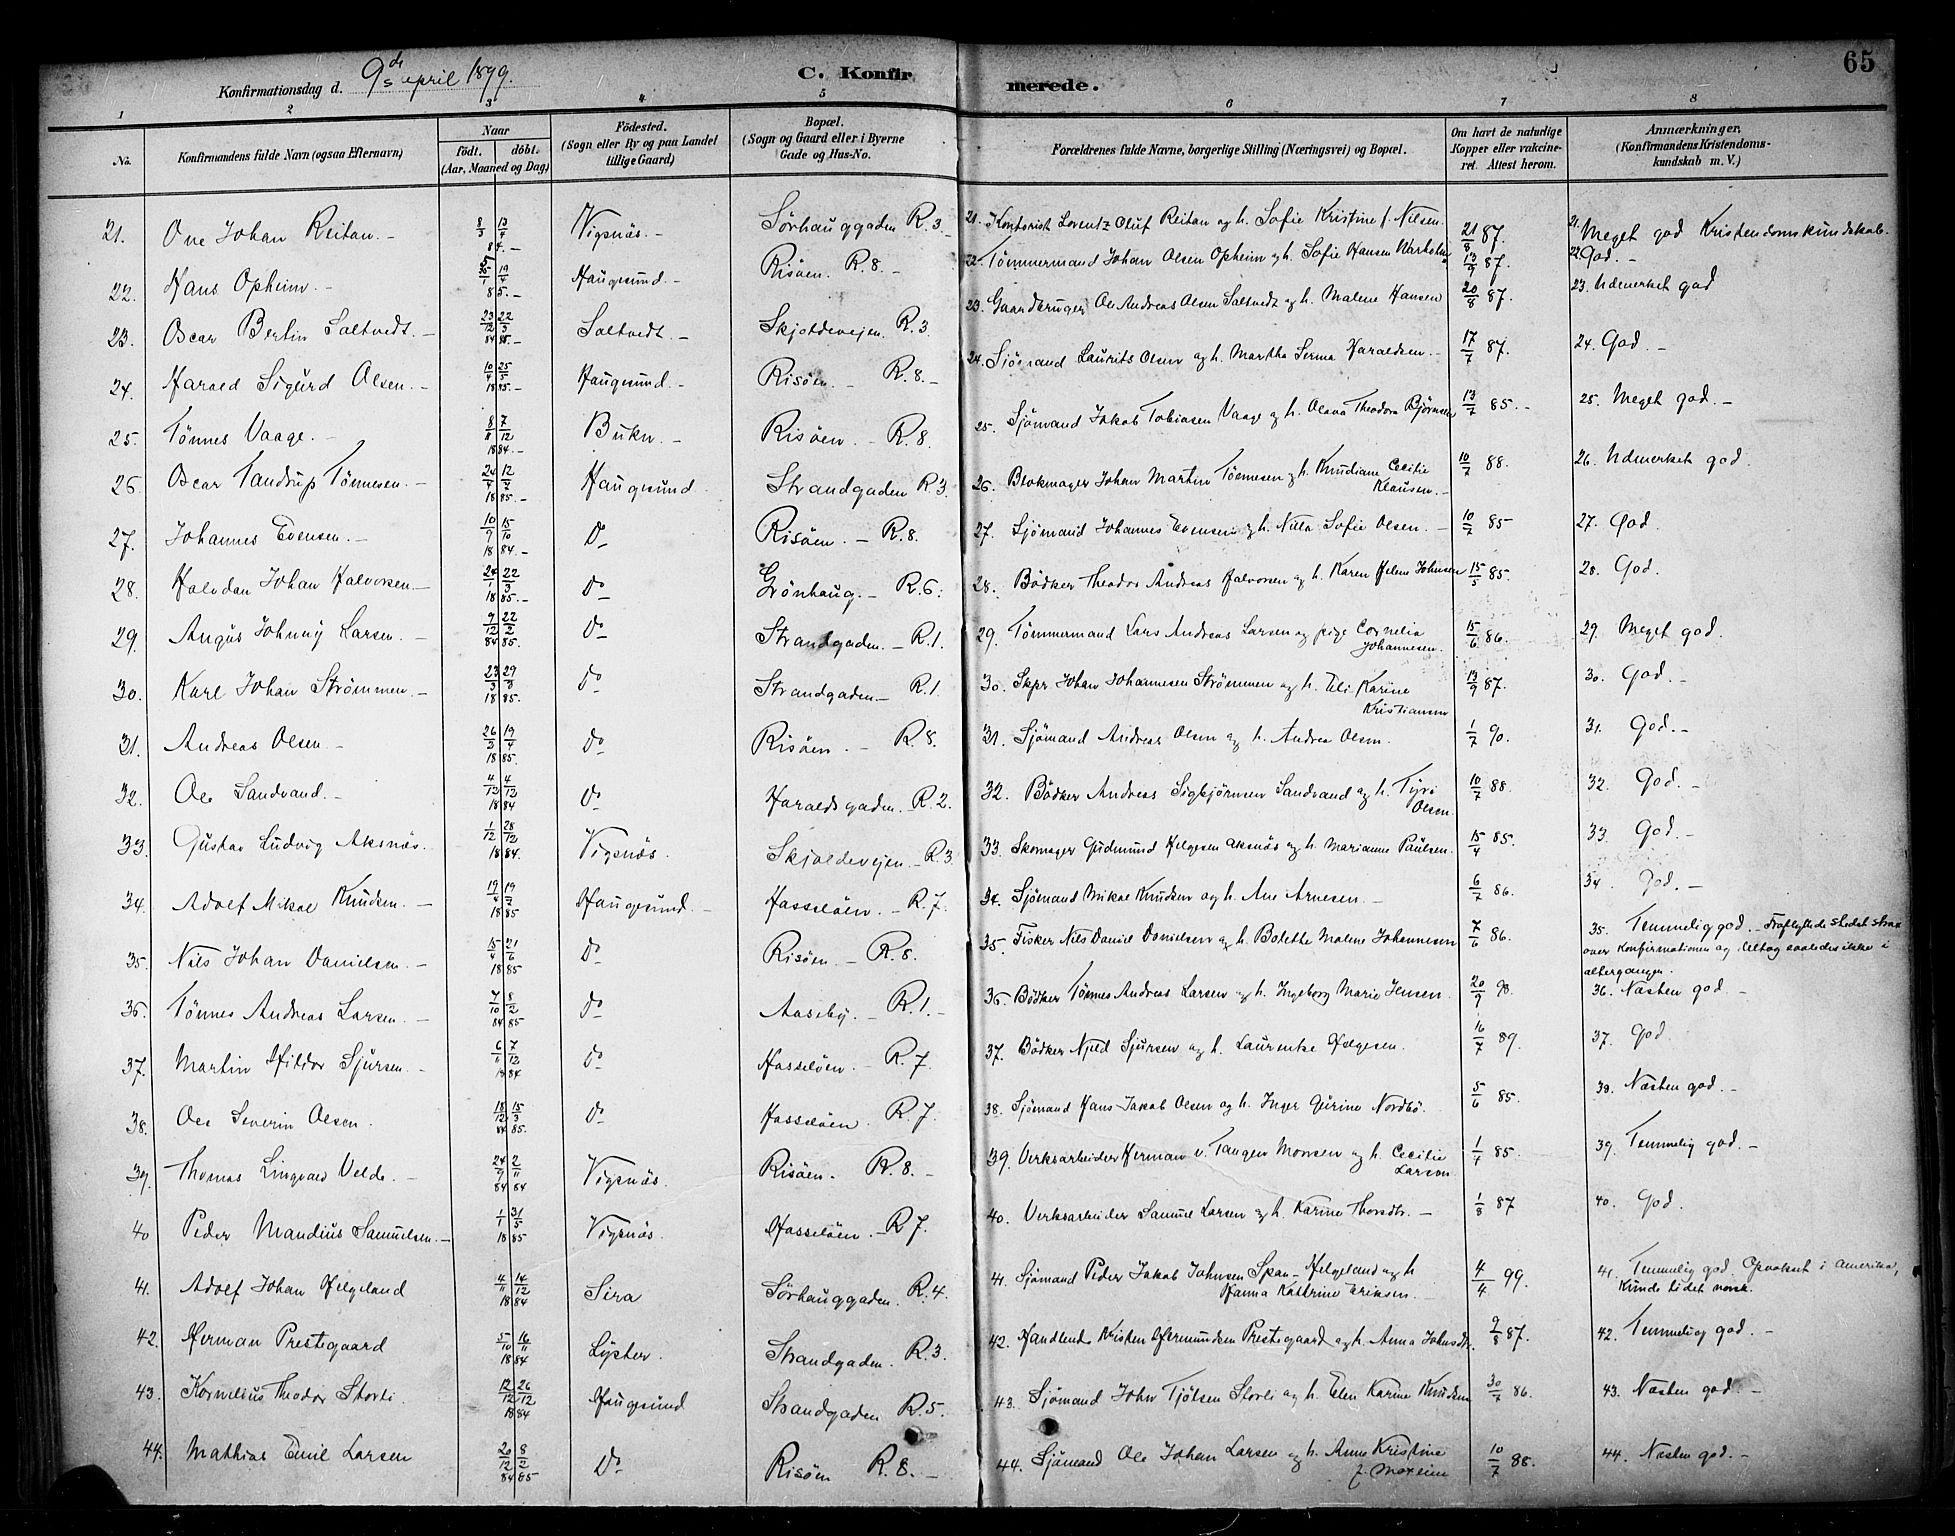 65
Konfirmationsdag d. 9de april 1899.
C. Konfirmerede.
1 2 3 4 5 6 7 8
No.
Konfirmandens fulde Navn (ogsaa Efternavn)
Naar
født. døbt.
(Aar, Maaned og Dag)
Fødested.
(Sogn eller By og paa Landet
tillige Gaard)
Bopæl.
(Sogn og Gaard eller i Byerne
Gade og Hus-No.
Forældrenes fulde Navne, borgerlige Stilling (Næringsvei) og Bopæl.
Om havt de naturlige
Kopper eller vakcine-
ret. Attest herom.
Anmærkninger.
(Konfirmandens Kristendoms-
kundskab m. V.)
21. Ove Johan Reitan. 8/3 13/4 84. Vigsnæs. Sørhauggaden R. 3. 21. Kontorist Lorentz Oluf Reitan og h. Sofie Kristine f. Nilsen. 21/8 87. 21. Meget god Kristendomskundskab.
22. Hans Opheim. 1 19/4 85. Haugesund. Risøen. R. 8. 22. Tømmermand Johan Olsen Opheim og h. Sofie Hansen 13/9 87. 22. God.
23. Oscar Bertin Saltvedt. 23/12 84 22/3 85. Saltvedt. Skjoldevejen. R. 3 23. Gaardbruger Ole Andreas Olsen Saltvedt og h. Malene Hansen 20/8 87. 23. Udmerket god
24. Harald Sigurd Olsen. 10/4 25/5 1885. Haugesund Risøen. R. 8. 24. Sjømand Laurits Olsen og h. Martha Serina Haraldsen. 17/7 87. 24. God.
25. Tønnes Vaage. 8/8 7/12 1884. Bukn. Risøen. R. 8. 25. Sjømand Jakob Tobiasen Vaage og h. Olava Theodora Bjørnsen 13/7 85. 25. Meget god.
26. Oscar Tandrup Tønnesen. 24 12 1885. Haugesund. Strandgaden R. 3. 26. Blokmager Johan Martin Tønnesen og h. Knudiane Cecilie
Klausen. 10/7 88. 26. Udmerket god.
27. Johannes Evensen. 10/9 15/10 1884. Do Risøen. R. 8. 27. Sjømand Johannes Evensen og h. Nilla Sofie Olsen. 10/7 85 27. God.
28. Halvdan Johan Halvorsen 24/1 22/3 1885. Do Grønhaug. R. 6. 28. Bødker Theodor Andreas Halvorsen og h. Karen Helene Johnsen 15/5 85. 28. God.
29. Angus Johnny Larsen. 9/12 84 22/2 85. Do Strandgaden. R. 1. 29. Tømmermand Lars Andreas Larsen og pige Cornelia
Johannesen. 15/6 86. 29. Meget god.
30. Karl Johan Strømmen. 23/3 29 1885. Do Strandgaden R. 1. 30. Skpr Johan Johannesen Strømmen og h. Eli Karine
Kristiansen 13/9 87. 30. God.
31. Andreas Olsen 26/3 19/4 1885. Do Risøen. R. 8. 31. Sjømand Andreas Olsen og h. Andrea Olsen. 1/7 90. 31. God.
32. Ole Sandvand. 4/12 4/12 1884 Do Haraldsgaden. R. 2. 32. Bødker Andreas Sigbjørnsen Sandvand og h. Tyri
Olsen. 10/7 88. 32. God.
33. Gustav Ludvig Aksnæs. 1/12 28/12 1884. Vigsnæs. Skjoldevejen R. 3 33. Skomager Gudmund Helgesen Aksnæs og h. Marianne Paulsen. 15/4 85. 33. God.
34. Adolf Mikal Knudsen. 19/4 19/7 1885 Haugesund. Hasseløen. R. 7. 34. Sjømand Mikal Knudsen og h. Ane Arnesen. 6/7 86. 34. God.
35. Nils Johan Danielsen. 15/4 21/6 1885 Do Risøen. R. 8. 35. Fisker Nils Daniel Danielsen og h. Bolette Malene Johannesen 7/6 86. 35. Temmelig god. Fraflyttede stedet strax
over Konfirmationen og deltog saaledes ikke i
altergangen.
36. Tønnes Andreas Larsen. 7/10 84 8/2 85 Do Aaseby. R. 1. 36. Bødker Tønnes Andreas Larsen og h. Ingeborg Marie Jensen. 20/9 98. 36. Næsten god.
37. Martin Hildor Sjursen. 6 7/12 1884 Do Hasseløen. R. 7. 37. Bødker Njeld Sjursen og h. Laurentse Helgesen. 16/7 89. 37. God.
38. Ole Severin Olsen. 18/12 84 15/3 85. Do Hasseløen. R. 7. 38. Sjømand Hans Jakob Olsen og h. Inger Gurine Nordbø. 5/6 85. 38. Næsten god.
39. Thomas Lingvard Velde. 24/9 84 2/11 84 Vigsnæs. Risøen. R. 8. 39. Verksarbeider Herman v. Tangen Monsen og h. Cecilie
Larsen 1/7 85. 39. Temmelig god.
40 Peder Mandius Samuelsen. 1/1 31/5 1885 Vigsnæs. Hasseløen. R 7. 40. Verksarbeider Samuel Larsen og h. Karine Thorsdtr. 1/8 87 40. God.
41. Adolf Johan Helgeland 4/11 14/12 1884 Sira Sørhauggaden. R. 4. 41. Sjømand Peder Jakob Johnsen Span-Helgeland og h
Hanna Kathrine Eriksen. 4/4 99. 41. Temmelig god. Opvokset i Amerika,
Kunde lidet norsk.
42. Herman Prestegaard 5/10 16/11 1884 Lyster. Strandgaden. R. 3. 42. Handlende Kristen Hermundsen Prestegaard og h. Anna Johnsdtr. 9/8 87. 42. Temmelig god.
43. Kornelius Theodor Storli. 12/12 26/12 1884 Haugesund Strandgaden R. 5. 43. Sjømand John Tjølsen Storli og h. Elen Karine Knudsen 30/7 86. 43. Næsten god.
44. Mathias Emil Larsen 20/12 84 8/2 85 Do Risøen R. 8. 44. Sjømand Ole Johan Larsen og h. Anne Kristine
f. 10/7 88. 44. Næsten god.